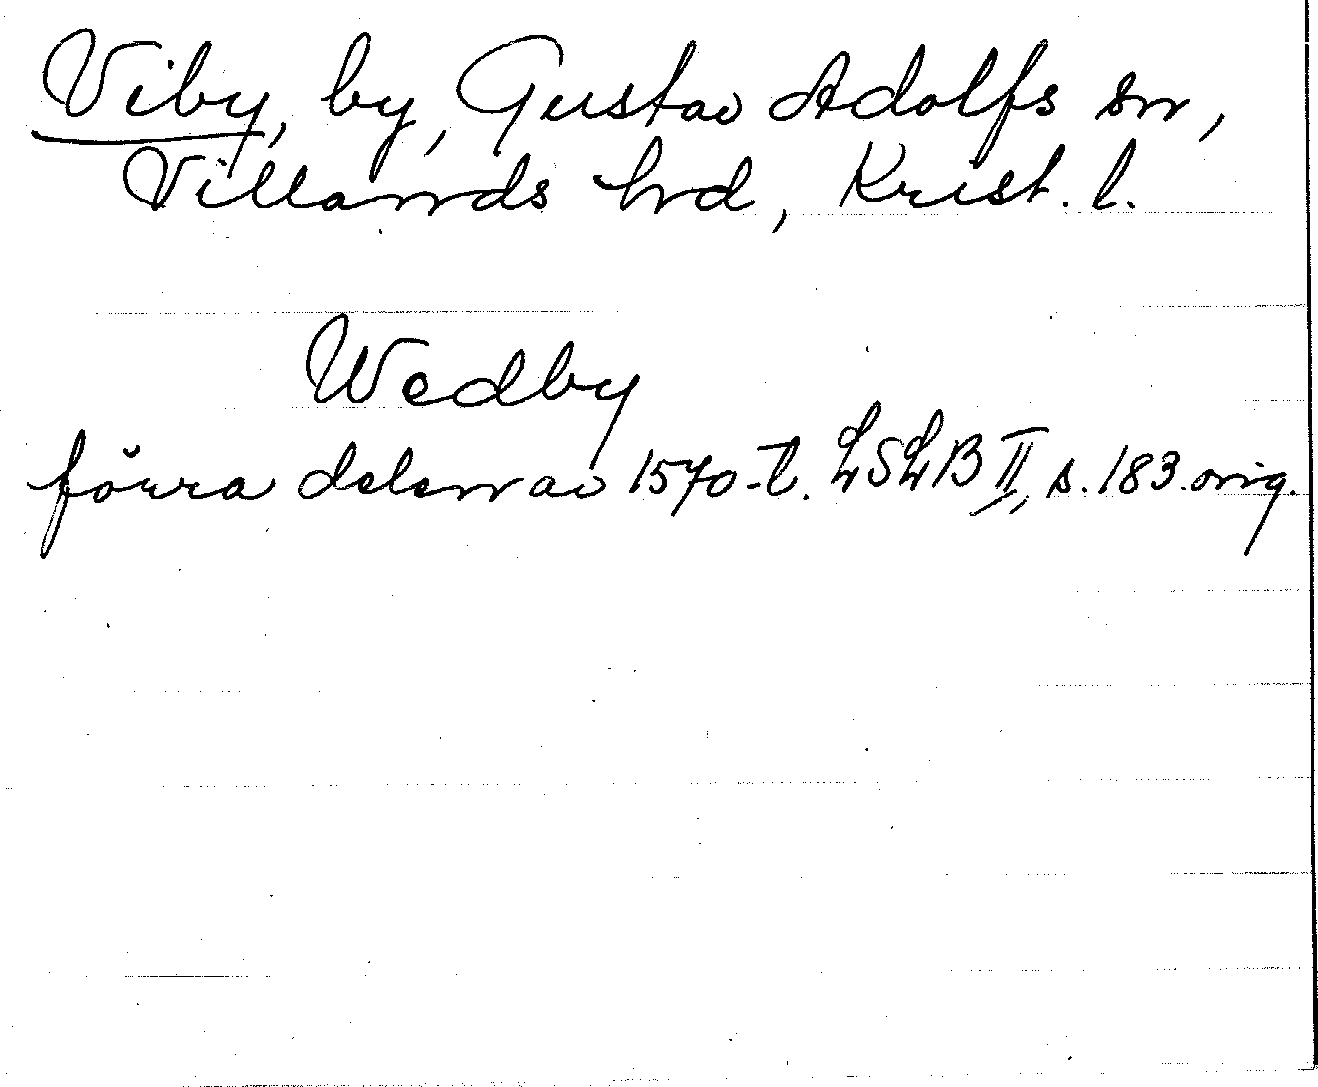 Viby, by, Gustav Adolfs sn,
Villands hrd, Krist. l.
Wedby
förra delen av 1570-t. LSLB II, s. 183. orig.